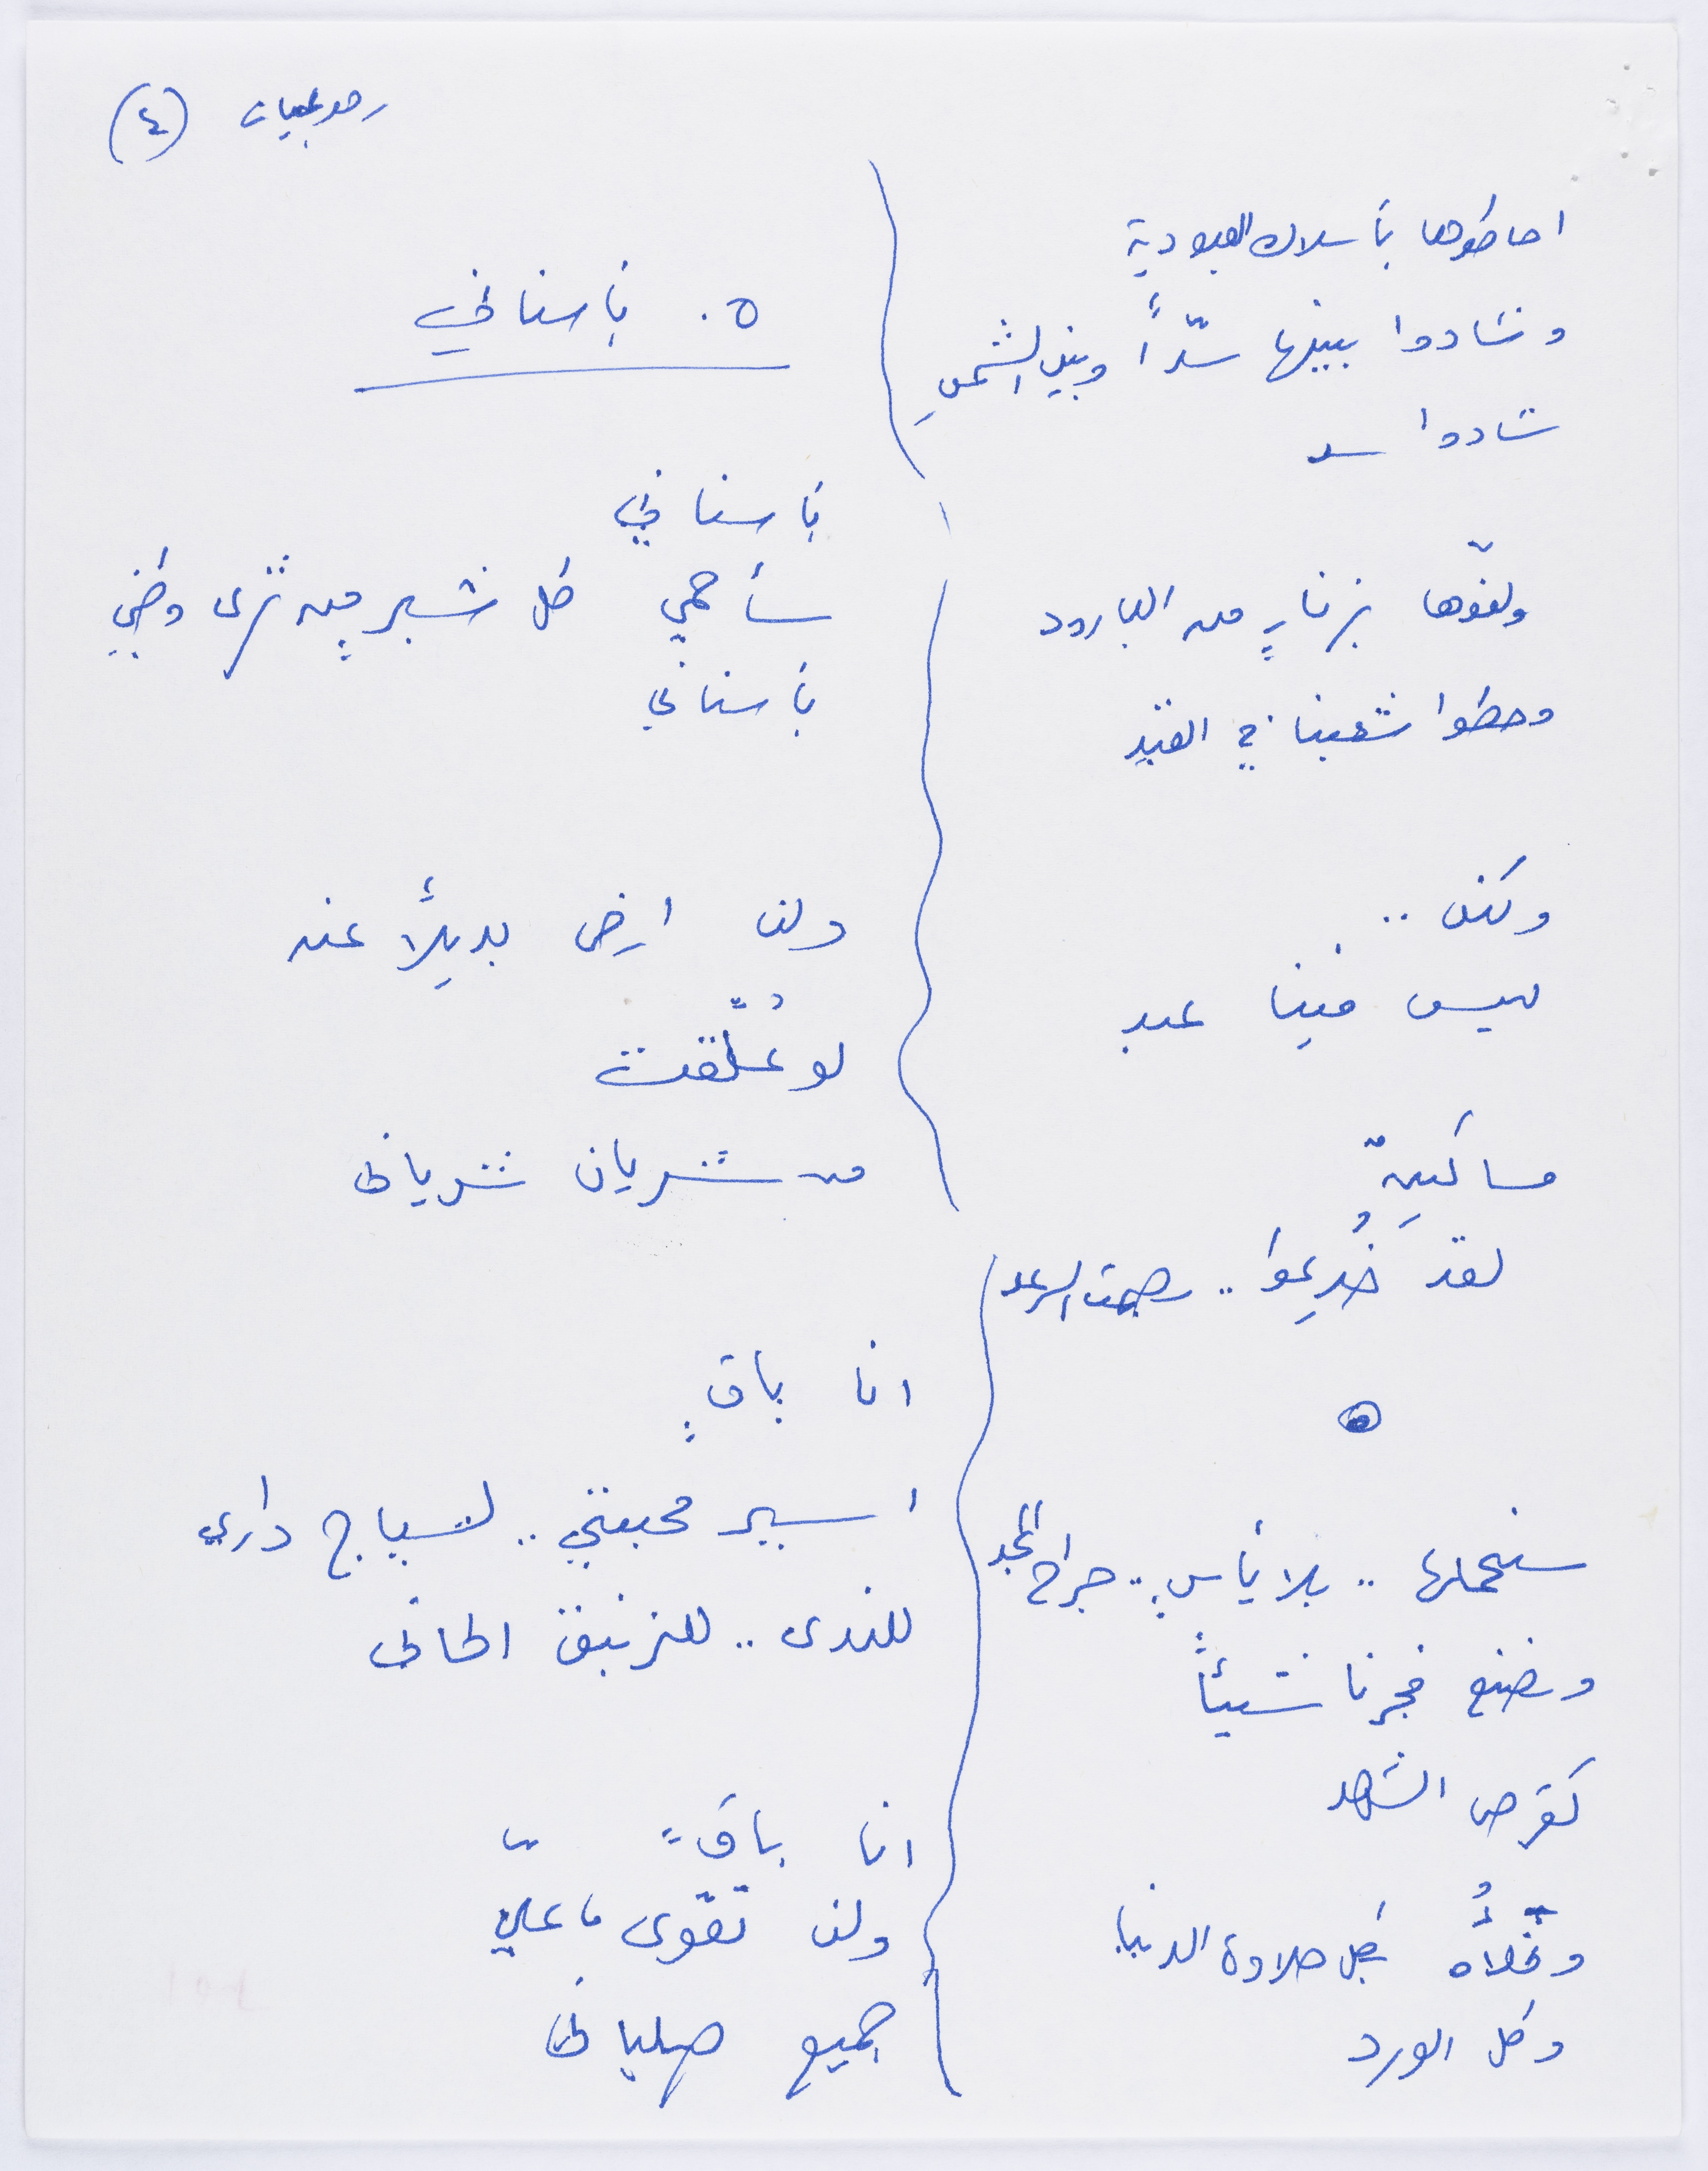 (٤)
احاطوها بأسلاك العبودية
وشادوا بينها سدّاً وبين الشمسِ
شادوا سد
ولفّوها بزنارٍ من البارود
وحطوا شعبنا في القيد
ولكن ..
ليس فينا عبد
مساكينٌ
لقد خُدِعوا .. بصمت الرعد
سنحملها .. بلا يأسٍ .. جراح المجد
ونصنع فجرنا شيئاً
كقرص الشهد
ونملأُه بكل حلاوة الدنيا
وكل الورد
٥. بأسناني
بأسناني
سأحمي كل شبرٍ من ثرى وطني
بأسناني
ولن ارضى بديلاً عنه
لو عُلّقت
من شريان شرياني
انا باقٍ
اسير محبتي .. لسياج داري
للندى .. للزنبق الحاني
انا باقٍ
ولن تقوى عليّ
جميع صلباني